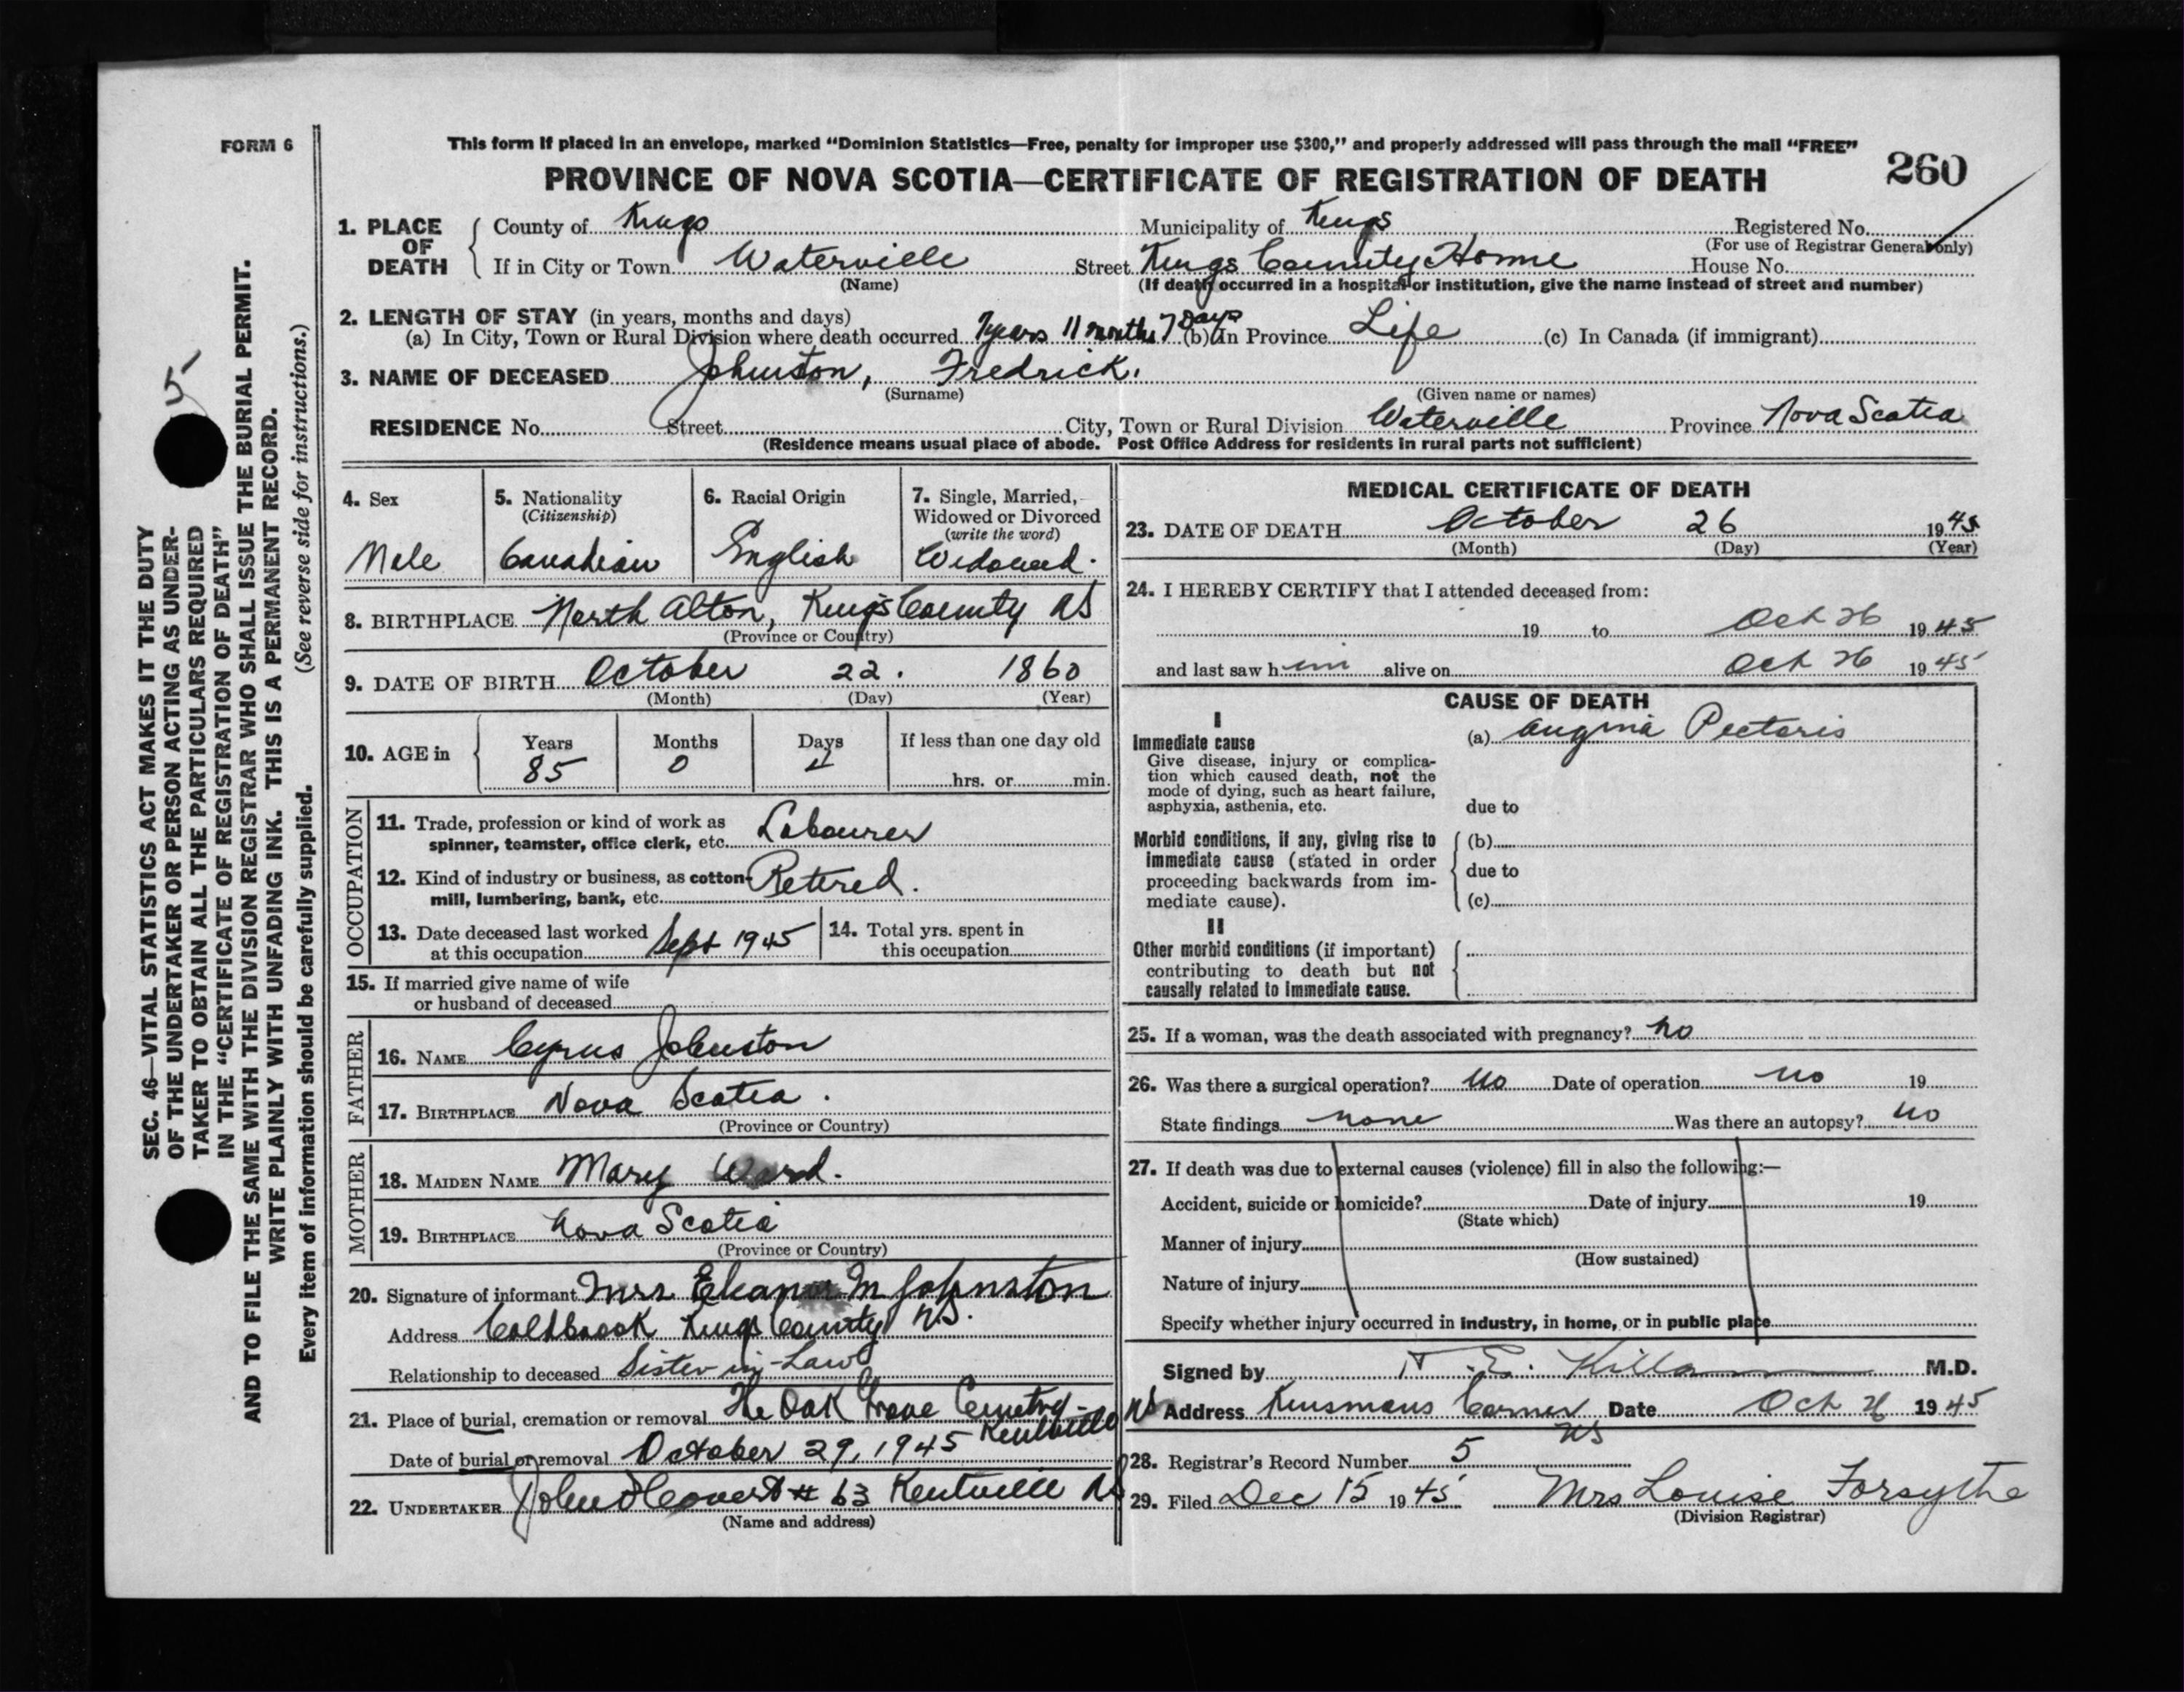 FORM 6
This form if placed in an envelope, marked "Dominion Statistics—Free, penalty for improper use $300," and properly addressed will pass through the mail "FREE"
PROVINCE OF NOVA SCOTIA—CERTIFICATE OF REGISTRATION OF DEATH
260
1. PLACE OF DEATH County of Kings Municipality of Kings Registered No.
(For use of Registrar General only)
If in City or Town Waterville Street Kings County Home House No.
(Name) (If death occurred in a hospital or institution, give the name instead of street and number)
2. LENGTH OF STAY (in years, months and days)
(a) In City, Town or Rural Division where death occurred 7 years 11 months 7 Days (b) In Province Life (c) In Canada (if immigrant)
3. NAME OF DECEASED Johnston, Fredrick.
(Surname) (Given name or names)
RESIDENCE No. Street City, Town or Rural Division Waterville Province Nova Scotia
(Residence means usual place of abode. Post Office Address for residents in rural parts not sufficient)
4. Sex
Male
5. Nationality
(Citizenship)
Canadian
6. Racial Origin
English
7. Single, Married,
Widowed or Divorced
(write the word)
Widowed.
8. BIRTHPLACE North Alton, Kings County NS
(Province or Country)
9. DATE OF BIRTH October 22. 1860
(Month) (Day) (Year)
10. AGE in Years Months Days If less than one day old
85 0 4 hrs. or min.
OCCUPATION
11. Trade, profession or kind of work as
spinner, teamster, office clerk, etc. Labourer
12. Kind of industry or business, as cotton-
mill, lumbering, bank, etc. Retired.
13. Date deceased last worked
at this occupation Sept 1945
14. Total yrs. spent in
this occupation
15. If married give name of wife
or husband of deceased
FATHER
16. NAME Cyrus Johnston
17. BIRTHPLACE Nova Scotia.
(Province or Country)
MOTHER
18. MAIDEN NAME Mary Ward.
19. BIRTHPLACE Nova Scotia
(Province or Country)
20. Signature of informant Mrs Eleanor M Johnston
Address Coldbrook Kings County N.S.
Relationship to deceased Sister-in-Law
21. Place of burial, cremation or removal The Oak Grove Cemetry-
Kentville NS
Date of burial or removal October 29, 1945
22. UNDERTAKER # 63 Kentville NS
(Name and address)
MEDICAL CERTIFICATE OF DEATH
23. DATE OF DEATH October 26 1945
(Month) (Day) (Year)
24. I HEREBY CERTIFY that I attended deceased from:
19 to Oct 26 1945
and last saw him alive on Oct 26 1945
CAUSE OF DEATH
I
Immediate cause
Give disease, injury or complica-
tion which caused death, not the
mode of dying, such as heart failure,
asphyxia, asthenia, etc.
(a) Angina Pectoris
due to
Morbid conditions, if any, giving rise to
immediate cause (stated in order
proceeding backwards from im-
mediate cause).
(b)
due to
(c)
II
Other morbid conditions (if important)
contributing to death but not
causally related to immediate cause.
25. If a woman, was the death associated with pregnancy? no
26. Was there a surgical operation? no Date of operation no 19
State findings none Was there an autopsy? no
27. If death was due to external causes (violence) fill in also the following:—
Accident, suicide or homicide? Date of injury 19
(State which)
Manner of injury
(How sustained)
Nature of injury
Specify whether injury occurred in industry, in home, or in public place
Signed by E. Killam M.D.
Address Kinsmans Corner Date Oct 26 1945
NS
28. Registrar's Record Number 5
29. Filed Dec 15 1945 Mrs Louise Forsythe
(Division Registrar)
SEC. 46—VITAL STATISTICS ACT MAKES IT THE DUTY
OF THE UNDERTAKER OR PERSON ACTING AS UNDER-
TAKER TO OBTAIN ALL THE PARTICULARS REQUIRED
IN THE "CERTIFICATE OF REGISTRATION OF DEATH"
AND TO FILE THE SAME WITH THE DIVISION REGISTRAR WHO SHALL ISSUE THE BURIAL PERMIT.
WRITE PLAINLY WITH UNFADING INK. THIS IS A PERMANENT RECORD.
Every item of information should be carefully supplied. (See reverse side for instructions.)